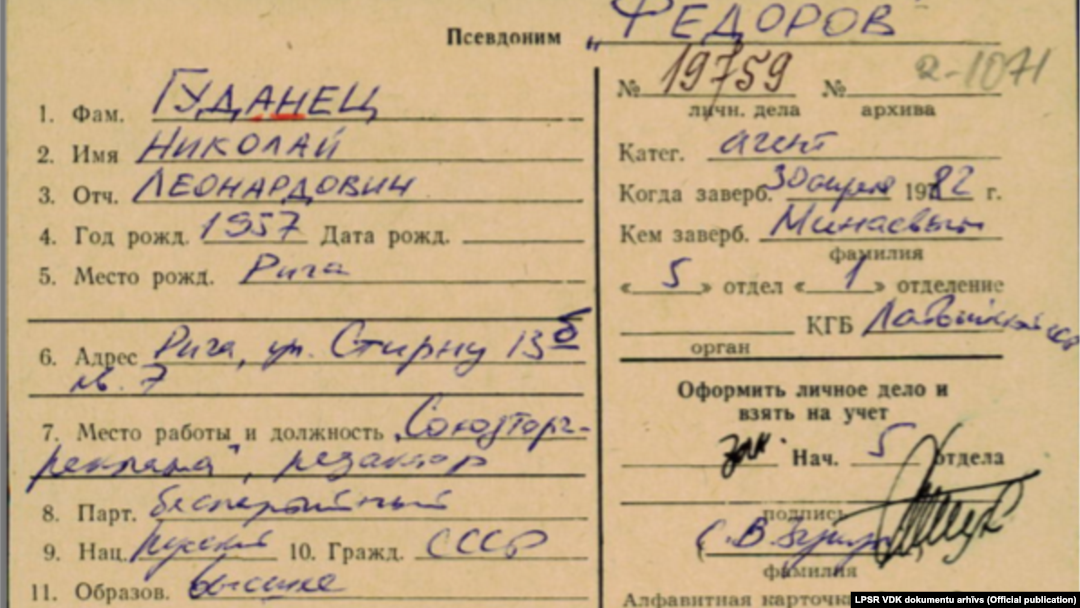 Псевдоним „ФЕДОРОВ"
1. Фам. ГУДАНЕЦ
2. Имя НИКОЛАЙ
3. Отч. ЛЕОНАРДОВИЧ
4. Год рожд. 1957 Дата рожд.
5. Место рожд. Рига
6. Адрес Рига, ул. Стирну 13б
кв. 7
7. Место работы и должность „Союзторг-
реклама", редактор
8. Парт. беспартийный
9. Нац. русский 10. Гражд. СССР
11. Образов. высшее
№ 19759 № 2-1071
личн. дела архива
Катег. агент
Когда заверб. 30 апреля 1982 г.
Кем заверб. Минаевым
фамилия
«5» отдел «1» отделение
КГБ Латвийской ССР
орган
Оформить личное дело и
взять на учет
зам. Нач. 5 отдела
подпись
фамилия
Алфавитная карточка
LPSR VDK dokumentu arhīvs (Official publication)